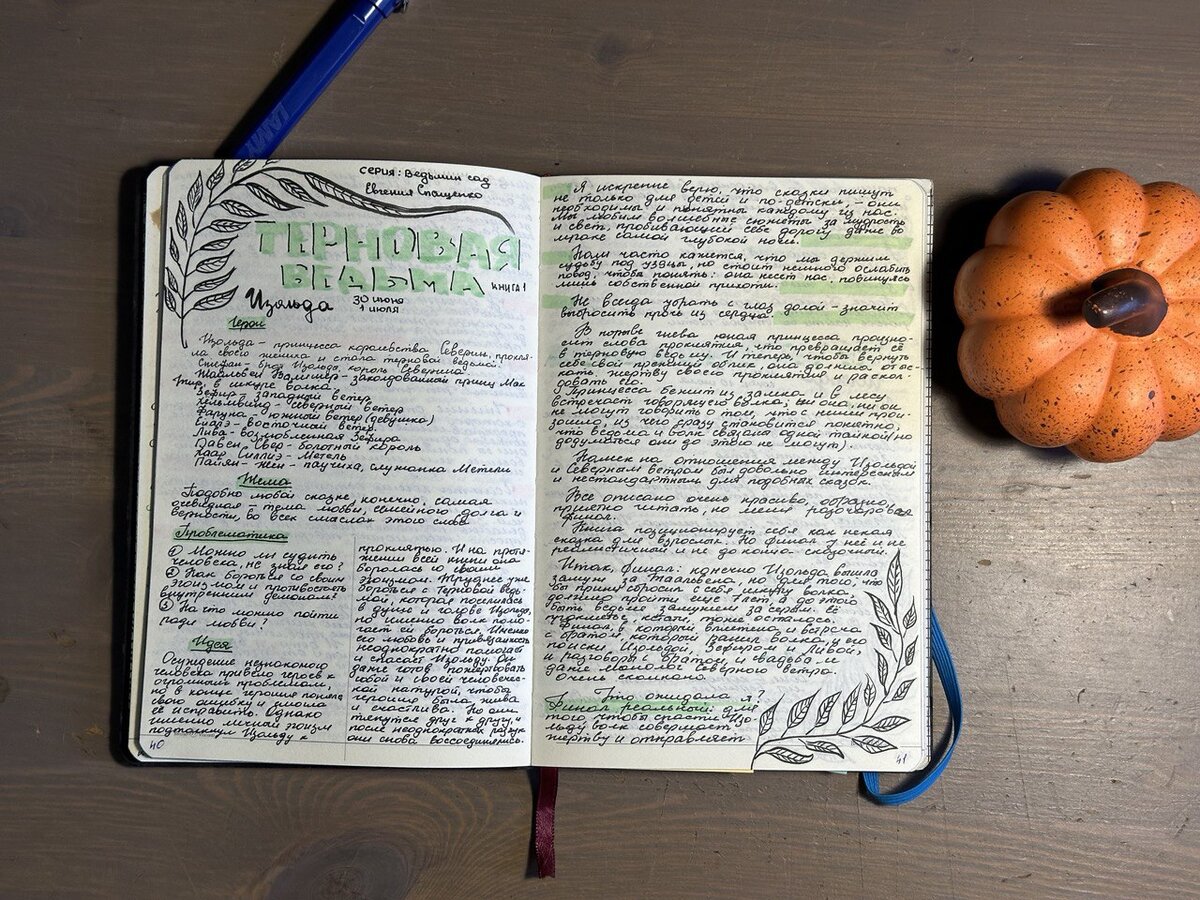 LAMY
серия: Ведьмин сад
Евгения Спащенко
ТЕРНОВАЯ
ВЕДЬМА
книга 1
Изольда
30 июня
1 июля
Герои
Изольда - принцесса королевства Северин, прокля-
ла своего жениха и стала терновой ведьмой.
Стефан - брат Изольды, король Северина
Таальвен Валишер - заколдованный принц Мак
Тир, в шкуре волка.
Зефир - западный ветер
Хельмвинд - северный ветер
Фаруна - южный ветер (девушка)
- восточный ветер.
Лива - возлюбленная Зефира
Давен Сверр - болотный король
Хаар Силлиэ - Метель
Пайян-Жен - паучиха, служанка Метели
Тема
Подобно любой сказке, конечно, самая
очевидная - тема любви, семейного долга и
верности, во всех смыслах этого слова
Проблематика
① Можно ли судить
человека, не зная его?
② Как бороться со своим
эгоизмом и противостоять
внутренним демонам?
③ На что можно пойти
ради любви?
Идея
Осуждение незнакомого
человека привело героев к
огромным проблемам,
но в конце героиня поняла
свою ошибку и смогла
её исправить. Однако
именно эгоизм
подтолкнул Изольду к
40
проклятью. И на протя-
жении всей книги она
боролась со своим
эгоизмом. Труднее уже
бороться с Терновой ведь-
мой, которая поселилась
в душе и голове Изольды,
но именно волк помо-
гает ей бороться. Именно
его любовь и привязанность
неоднократно помогает
и спасает Изольду. Он
даже готов пожертвовать
собой и своей человечес-
кой натурой, чтобы
героиня была жива
и счастлива. Но они
тянутся друг к другу, и
после неоднократных разлук
они снова воссоединялись.
Я искренне верю, что сказки пишут
не только для детей и по-детски, - они
необходимы и понятны каждому из нас.
Мы любим волшебные сюжеты за мудрость
и свет, пробивающий себе дорогу даже во
мраке самой глубокой ночи.
Нам часто кажется, что мы держим
судьбу под уздцы, но стоит немного ослабить
повод, чтобы понять: она несёт нас, повинуясь
лишь собственной прихоти.
Не всегда убрать с глаз долой - значит
выбросить прочь из сердца.
В порыве гнева юная принцесса произно-
сит слова проклятия, что превращает её
в терновую ведьму. И теперь, чтобы вернуть
себе свой прежний облик, она должна отыс-
кать жертву своего проклятия и раскол-
довать его.
Принцесса бежит из замка, и в лесу
встречает говорящего волка; ни она, ни он
не могут говорить о том, что с ними прои-
зошло, из чего сразу становится понятно,
что ведьма и волк связаны одной тайной (но
додуматься они до этого не смогут).
Намёк на отношения между Изольдой
и Северным ветром был довольно интересным
и нестандартным для подобных сказок.
Всё описано очень красиво, образно,
приятно читать, но меня разочаровал
финал.
Книга позиционирует себя как некая
сказка для взрослых. Но финал у неё и не
реалистичный и не до конца сказочный.
Итак, финал: конечно Изольда вышла
замуж за Таальвена, но для того, что
бы принц сбросил с себя шкуру волка,
должно пройти ещё 7 лет, а до этого
быть ведьме замужем за серым. Её
проклятье, кстати, тоже осталось.
Финал, в который вместили и встреча
с братом, который ранил волка, и его
поиски Изольдой, Зефиром и Ливой,
и разговоры с братом, и свадьба и
даже монолог северного ветра.
Очень скомкано.
Что ожидала я?
Финал реальный: для
того, чтобы спасти Изо-
льду волк совершает
жертву и отправляет
41